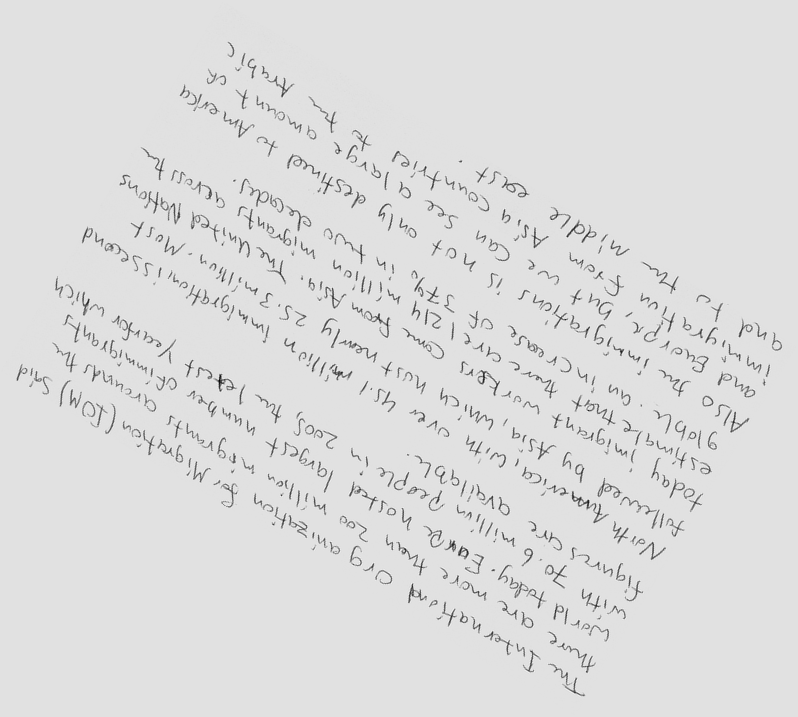 The International Organization for Migration (IOM) said
there are more than 200 million migrants arounds the
world today. Europe hosted largest number of immigrants
with 70.6 million people in 2005, the latest Yearfor which
figures are available.
North America, with over 45.1 million immigration is second
followed by Asia, which host nearly 25.3 million. Most
today imigrant workers come from Asia. The United Nations
estimate that there are 214 million migrants across the
globle. an increase of 37% in two decades.
Also the immigrations is not only destined to America
and Euorpe, but we can see a large amount of
immigration from Asia countries to the Arabic
and to the middle east.